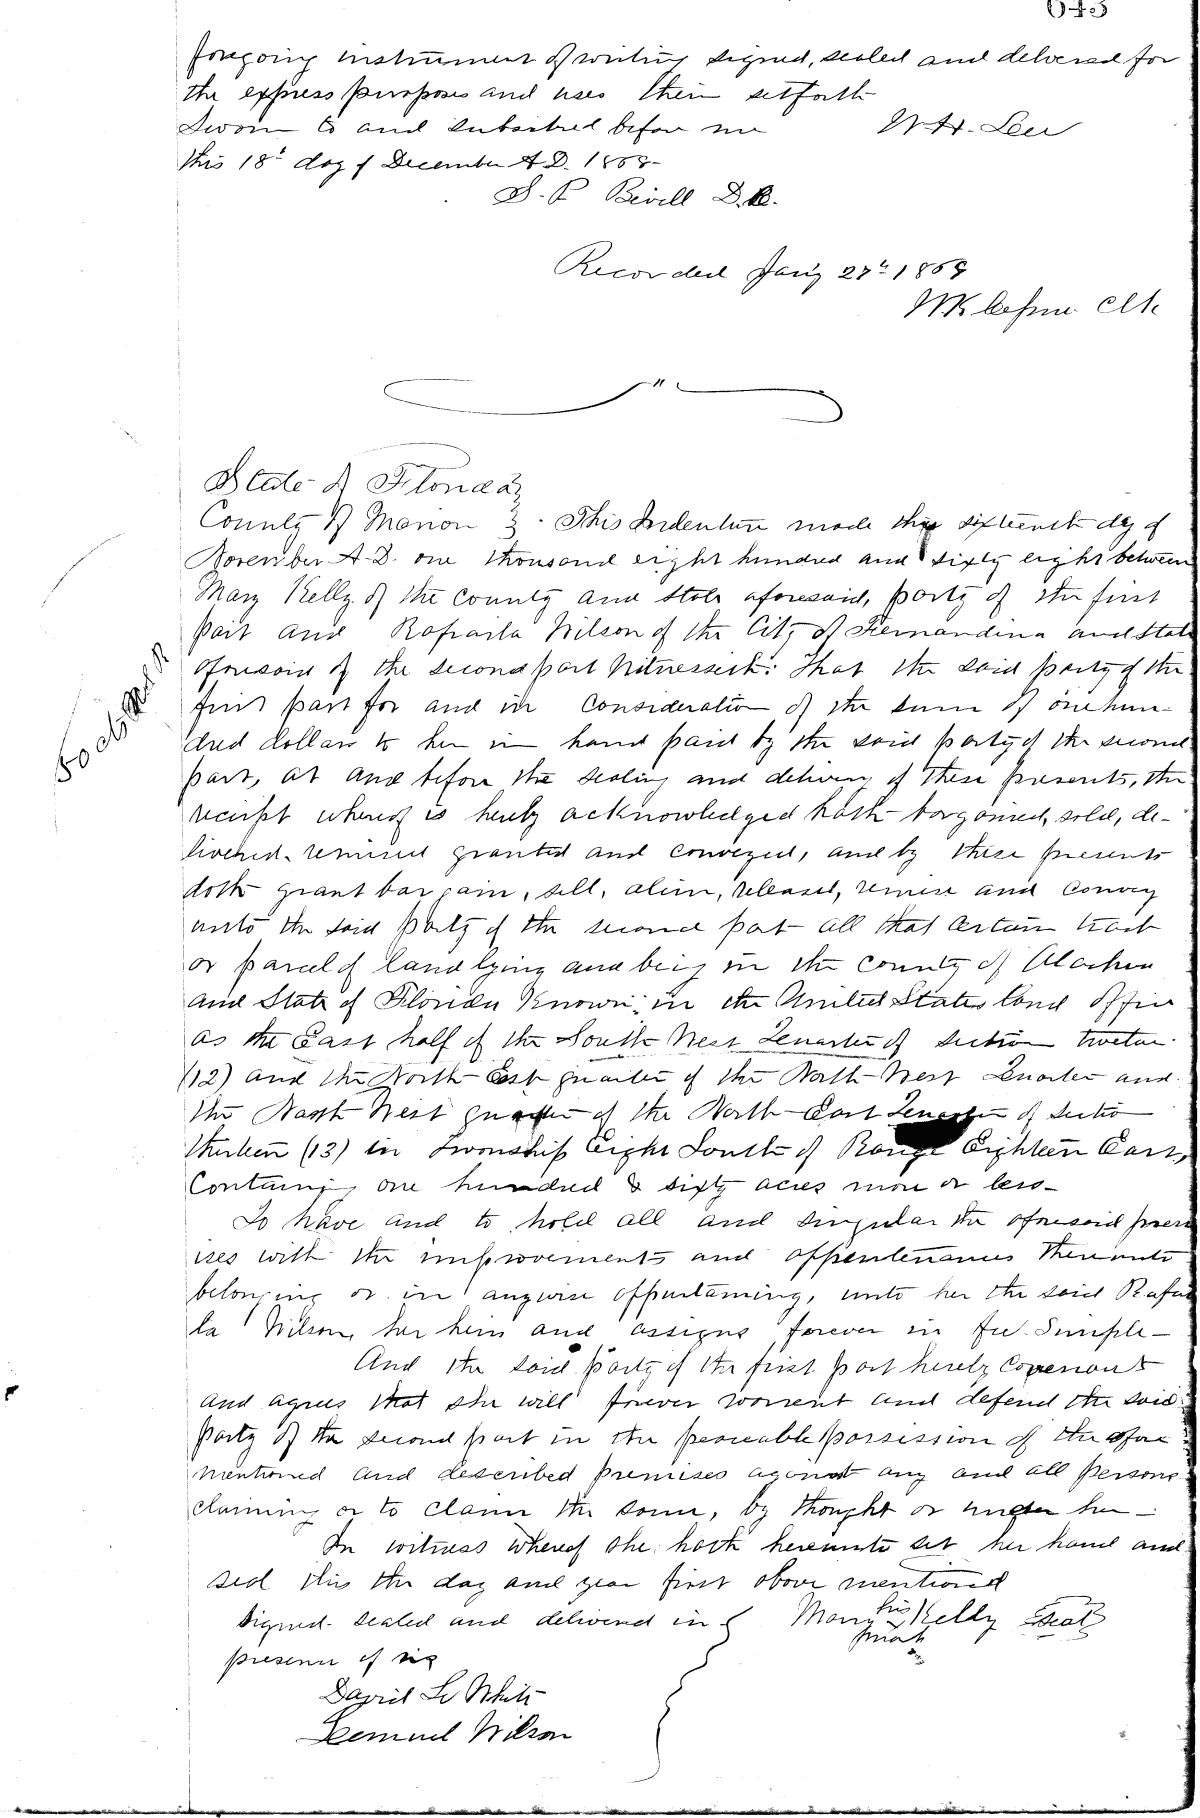 643
foregoing instrument of writing signed, sealed and delivered for
the express purposes and uses therein setforth
Sworn to and subscribed before me W. H. Lee
this 18th day of December A.D. 1868-
S. P. Bevill D.C.
Recorded Jany 27th 1869
Clk
State of Florida }
County of Marion } . This Indenture made this sixteenth day of
November A.D. one thousand eight hundred and sixty eight between
Mary Kelly of the County and State aforesaid, party of the first
part and Rafaela Wilson of the City of Fernandina and State
aforesaid of the second part Witnesseth: That the said party of the
first part for and in consideration of the sum of one hun-
dred dollars to her in hand paid by the said party of the second
part, at and before the sealing and delivery of these presents, the
receipt whereof is hereby acknowledged hath bargained, sold, de-
livered, remised granted and conveyed, and by these presents
doth grant bargain, sell, alien, released, remise and convey
unto the said party of the second part all that certain tract
or parcel of land lying and being in the county of Alachua
and State of Florida Known: in the United States land office
as the East half of the South West Quarter of section twelve
(12) and the North East quarter of the North West Quarter and
the North West quarter of the North East Quarter of Sectio
thirteen (13) in Township Eight South of Range Eighteen East,
Containing one hundred & sixty acres more or less-
To have and to hold all and singular the aforesaid prem
ises with the improvements and appentenances thereunto
belonging or in anywise appertaining, unto her the said Rafae
la Wilson, her heirs and assigns forever in fee Simple-
And the said party of the first part hereby Covenant
and agrees that she will forever warrent and defend the said
party of the second part in the peaceable possession of the afore
mentioned and described premises against any and all persons
claiming or to claim the same, by thought or under her-
In witness whereof she hath hereunto set her hand and
seal this the day and year first above mentioned
Signed sealed and delivered in } Mary his Kelly Seal
presence of us mark
David L. White
Lemuel Wilson